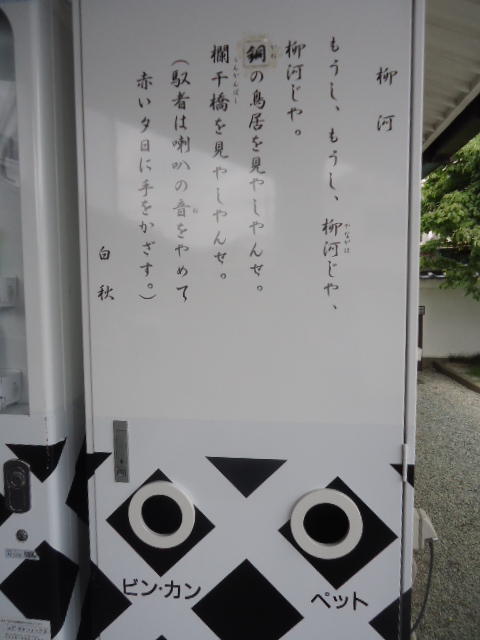 柳河
もうし、もうし、柳河じや、
やながは
柳河じや。
銅の鳥居を見やしやんせ。
かね
欄干橋を見やしやんせ。
らんかんばし
(馭者は喇叭の音をやめて
ね
赤い夕日に手をかざす。)
白秋
ビン・カン
ペット